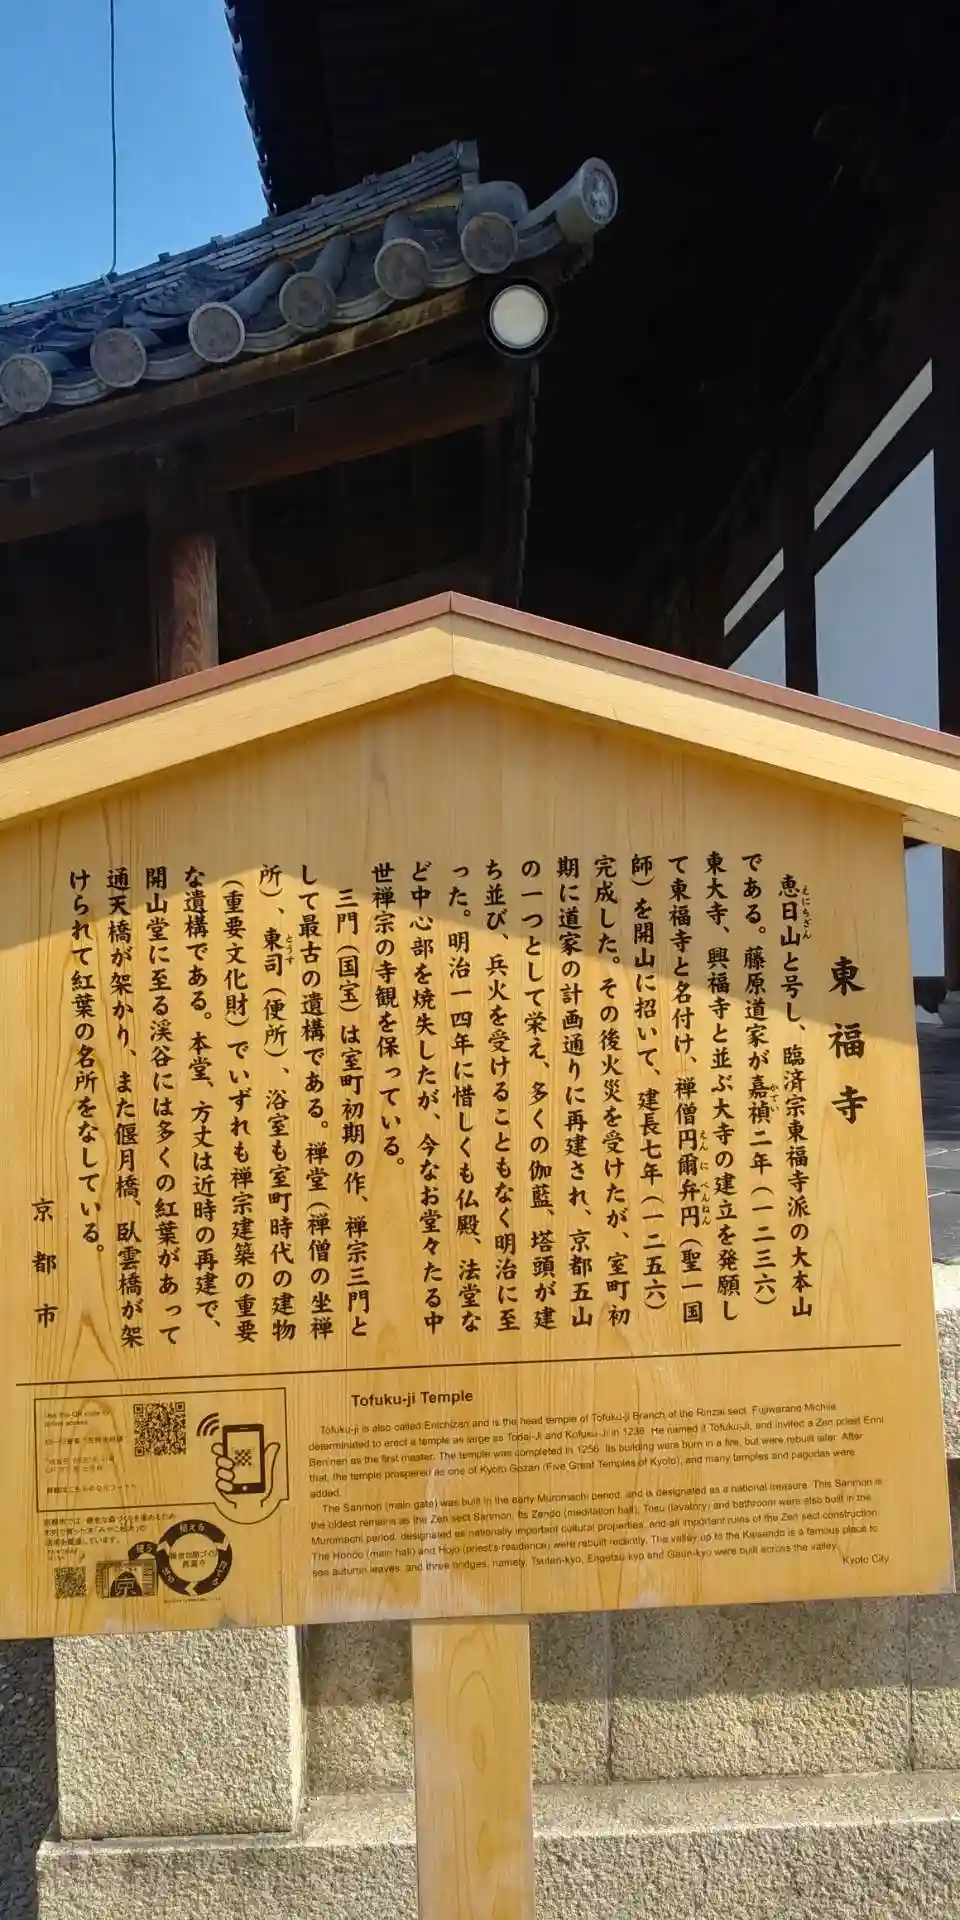 東福寺
恵日山と号し、臨済宗東福寺派の大本山
えにちざん
である。藤原道家が嘉禎二年（一二三六）
かてい
東大寺、興福寺と並ぶ大寺の建立を発願し
て東福寺と名付け、禅僧円爾弁円（聖一国
えんにべんねん
師）を開山に招いて、建長七年（一二五六）
完成した。その後火災を受けたが、室町初
期に道家の計画通りに再建され、京都五山
の一つとして栄え、多くの伽藍、塔頭が建
ち並び、兵火を受けることもなく明治に至
った。明治一四年に惜しくも仏殿、法堂な
ど中心部を焼失したが、今なお堂々たる中
世禅宗の寺観を保っている。
三門（国宝）は室町初期の作、禅宗三門と
して最古の遺構である。禅堂（禅僧の坐禅
所）、東司（便所）、浴室も室町時代の建物
とうす
（重要文化財）でいずれも禅宗建築の重要
な遺構である。本堂、方丈は近時の再建で、
開山堂に至る渓谷には多くの紅葉があって
通天橋が架かり、また偃月橋、臥雲橋が架
けられて紅葉の名所をなしている。
京都市
Tofuku-ji Temple
Tofuku-ji is also called Enichizan and is the head temple of Tofuku-ji Branch of the Rinzai sect. Fujiwarano Michiie
determinated to erect a temple as large as Todai-Ji and Kofuku-Ji in 1236. He named it Tofuku-Ji, and invited a Zen priest Enni
Ben'nen as the first master. The temple was completed in 1256. Its building were burn in a fire, but were rebuilt later. After
that, the temple prospered as one of Kyoto Gozan (Five Great Temples of Kyoto), and many temples and pagodas were
added.
The Sanmon (main gate) was built in the early Muromachi period, and is designated as a national treasure. This Sanmon is
the oldest remains as the Zen sect Sanmon. Its Zendo (meditation hall), Tosu (lavatory) and bathroom were also built in the
Muromachi period, designated as nationally important cultural properties, and all important ruins of the Zen sect construction.
The Hondo (main hall) and Hojo (priest's residence) were rebuilt recently. The valley up to the Kaisando is a famous place to
see autumn leaves, and three bridges, namely, Tsuten-kyo, Engetsu-kyo and Gaun-kyo were built across the valley.
Kyoto City
Use this QR code for